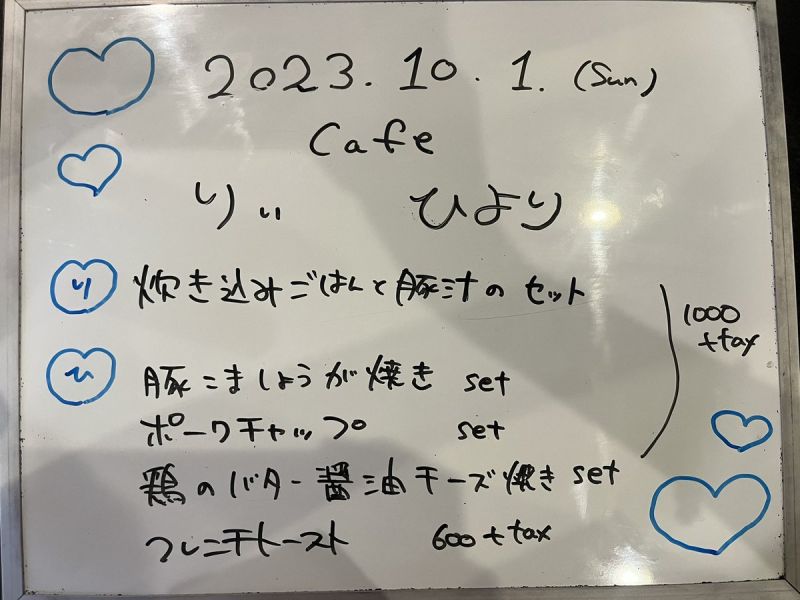 2023. 10. 1. (Sun)
Cafe
りぃ ひより
り 炊き込みごはんと豚汁の セット
1000
+tax
ひ 豚こましょうが焼き set
ポークチャップ set
鶏のバター醤油チーズ焼き set
フレンチトースト 600+tax